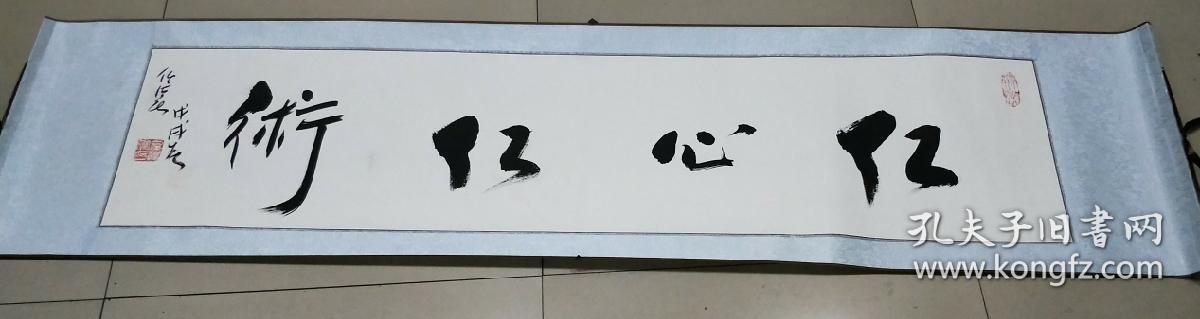 仁心仁術
戊戌春
孔夫子旧书网
www.kongfz.com